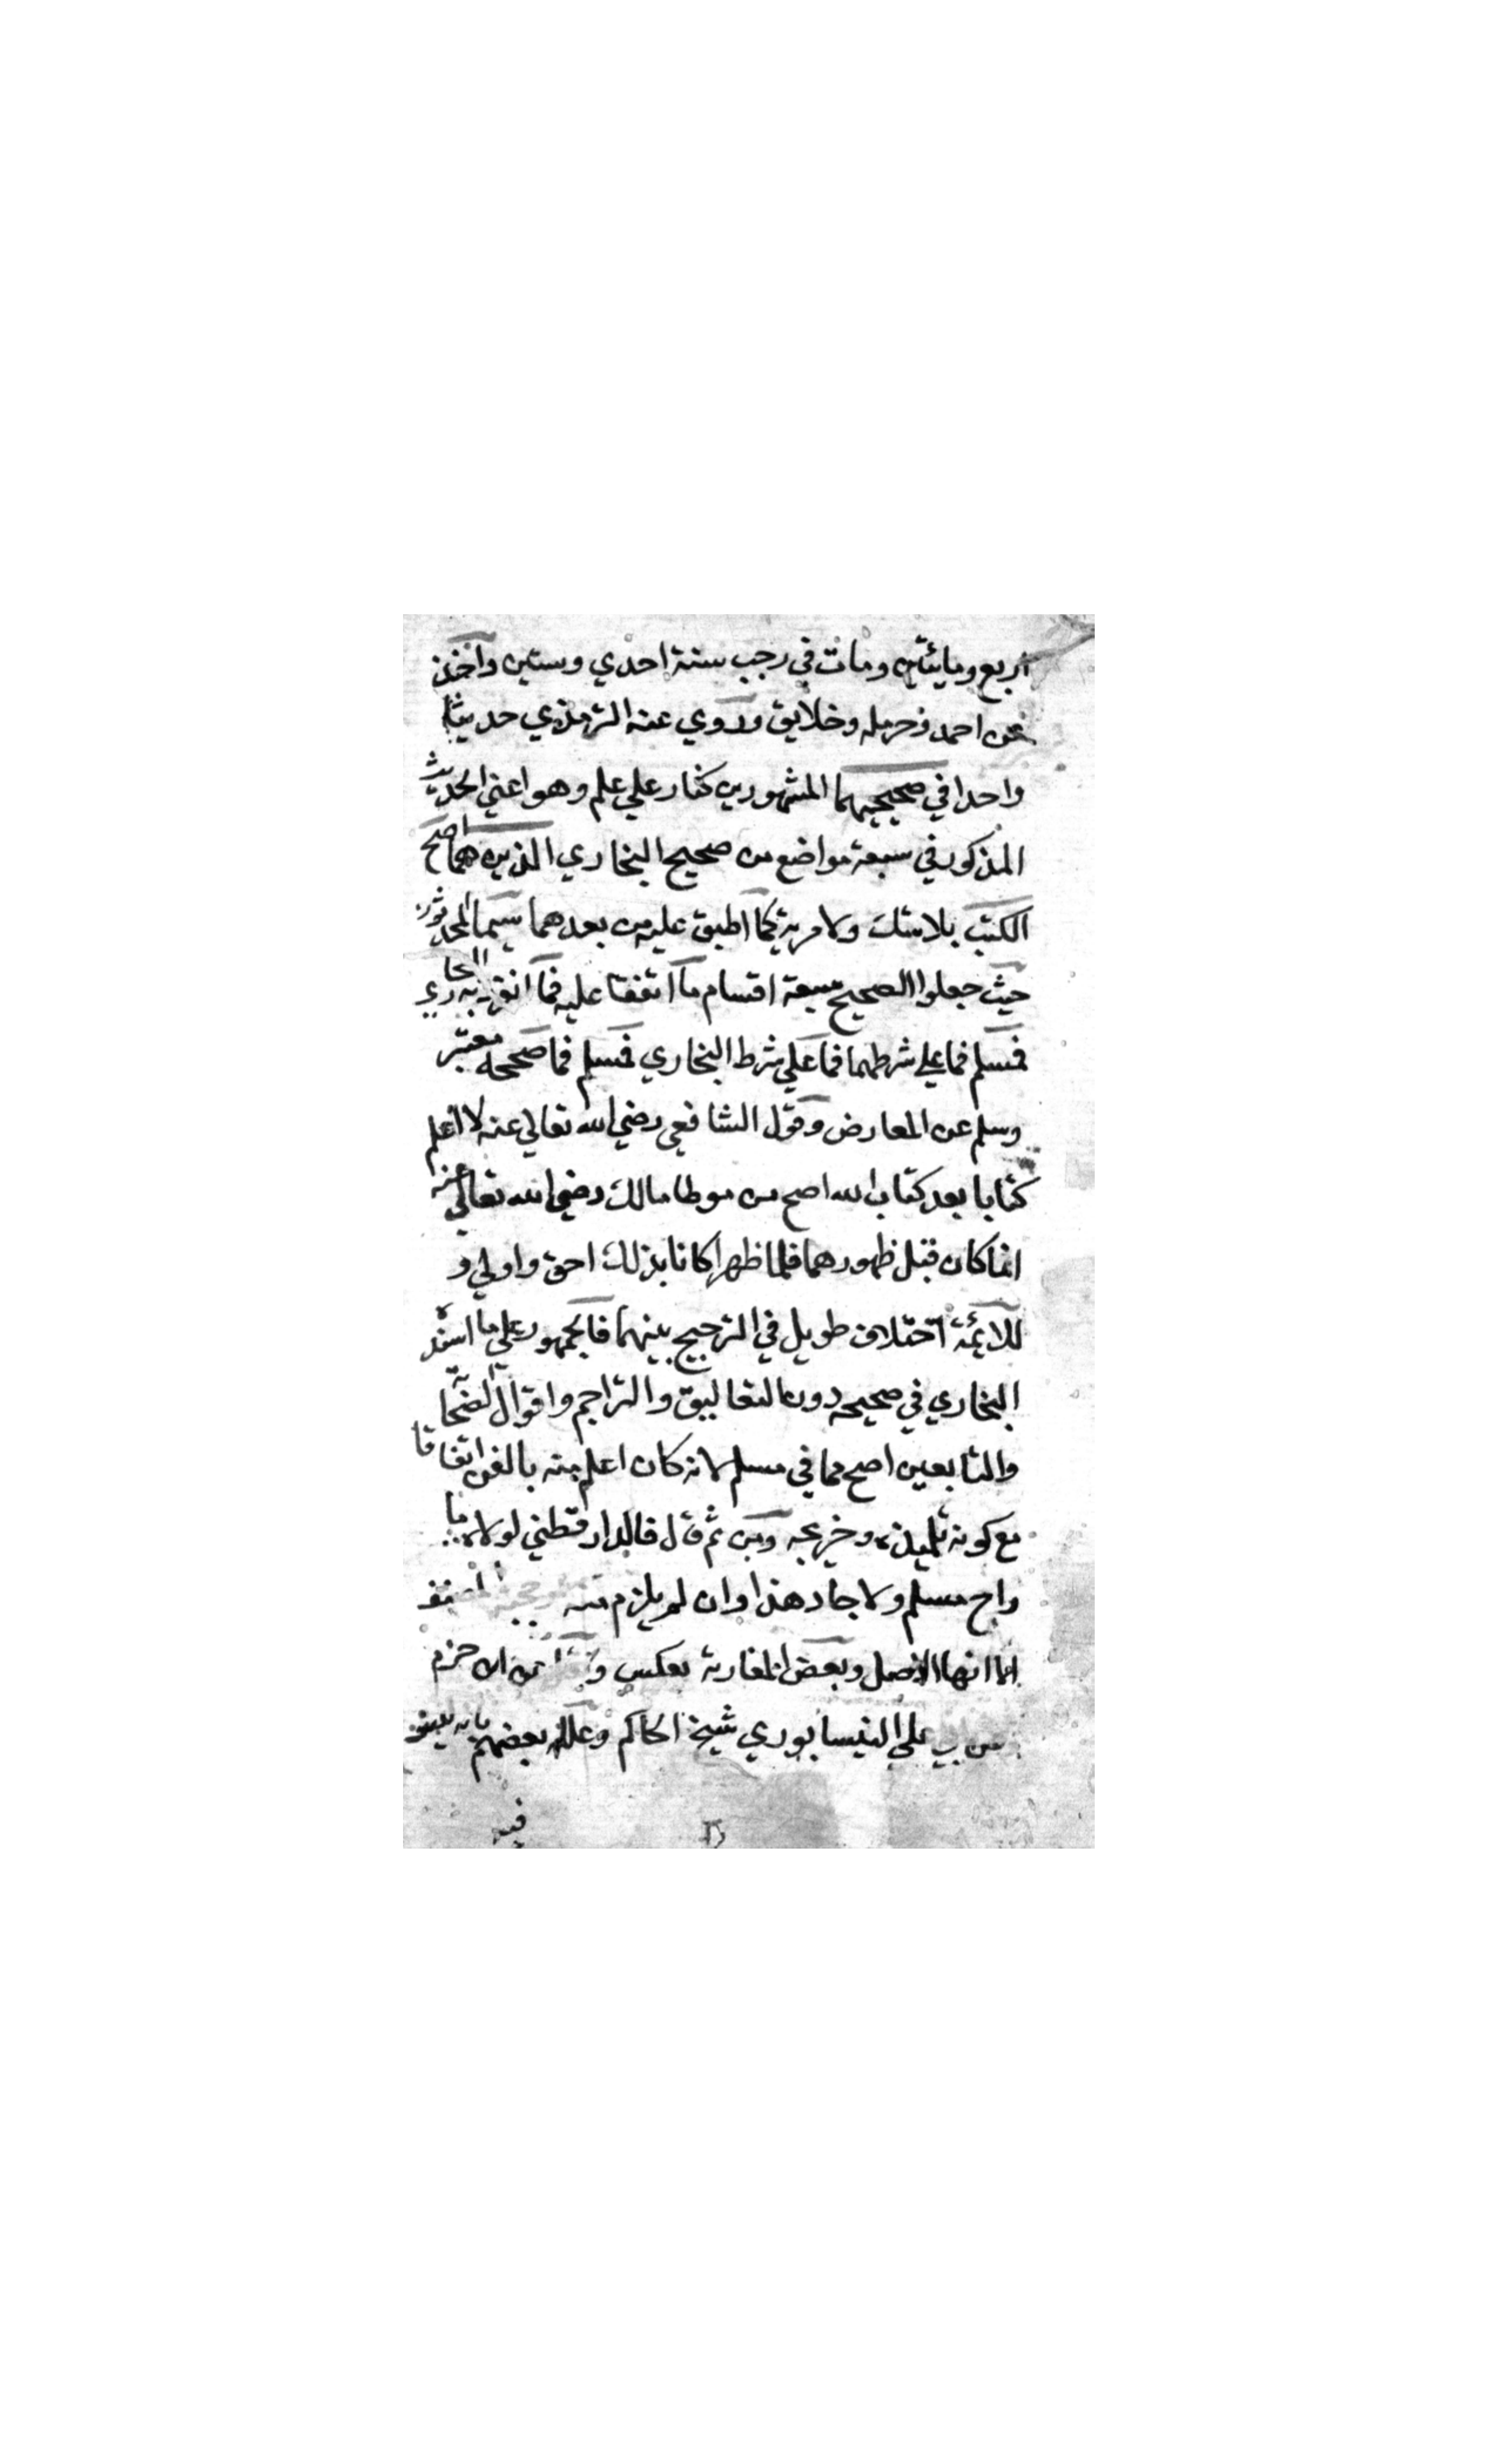 اربع ومايئتين ومات في رجب سنة احدي وستين واخذ
عن احمد وحرمله وخلايق وروي عنه الترمذي حديثا
واحدا في صحيحيهما المشهورين كنار علي علم وهو اعني الحديث
المذكور في سبعة مواضع من صحيح البخاري الذين هما اصح
الكتب بلا شك ولا مرية كما اطبق عليه من بعدهما سيما المحدثون
حيث جعلوا الصحيح سبعة اقسام ما اتفقا عليه فما انفرد به البخاري
فمسلم فما علي شرطهما فما علي شرط البخاري فمسلم فما صححه معتبر
وسلم عن المعارض وقول الشافعي رضي الله تعالي عنه لا اعلم
كتابا بعد كتاب الله اصح من موطا مالك رضي الله تعالي عنه
انما كان قبل ظهورهما فلما ظهرا كانا بذلك احق واولي و
للايمة اختلاف طويل في الترجيح بينهما فالجمهور علي ما اسنده
البخاري في صحيحه دون التعاليق والتراجم واقوال الصحابة
والتابعين اصح مما في مسلم لانه كان اعلم منه بالفن اتفاقا
مع كونه تلميذه وخريجه ومن ثم قال الدارقطني لولاه ما
راح مسلم ولا جاد هذا وان لم يلزم منه المصنف
الا انها الاصل وبعض المغاربة بعكس ابن حزم
علي النيسابوري شيخ الحاكم وعلله بعضهم بانه ليس
فيه